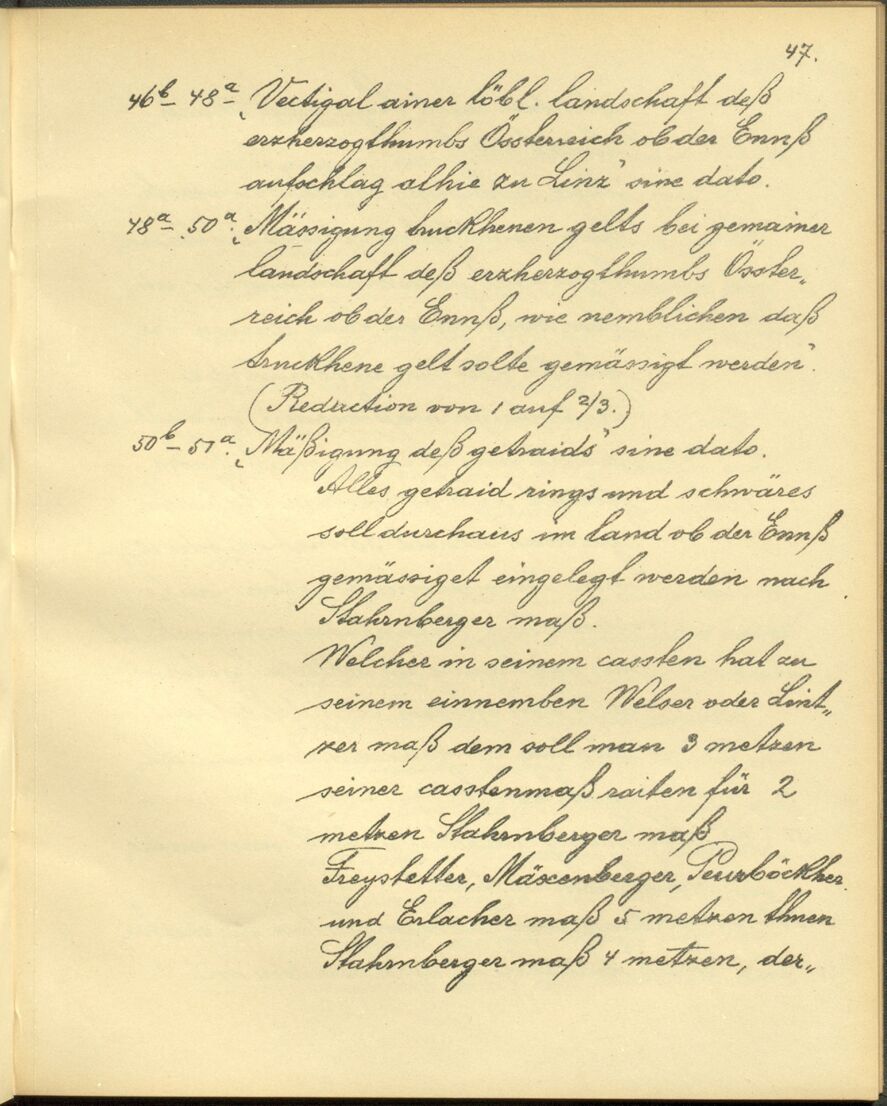 47.
46b - 48a „Vectigal ainer löbl. landschaft deß
erzherzogthumbs Össterreich ob der Ennß
aufschlag alhie zu Linz“ sine dato.
48a - 50a. „Mässigung truckhenen gelts bei gemainer
landschaft deß erzherzogthumbsÖsster„
reich ob der Ennß, wie nemblichen daß
truckhene gelt solte gemässigt werden“.
(Reduction von 1 auf 2/3.)
50b - 51a. „Mäßigung deß getraids“ sine dato.
Alles getraid rings und schwäres
soll durchaus im land ob der Ennß
gemässiget eingelegt werden nach
Stahrnberger maß.
Welcher in seinem cassten hat zu
seinem einnemben Welser oder Lint„
zer maß dem soll man 3 metzen
seiner casstenmaß raiten für 2
metzen Stahrnberger maß
Freystetter, Mäxenberger, Peurböckher
und Erlacher maß 5 metzen thuen
Stahrnberger maß 4 metzen, der„